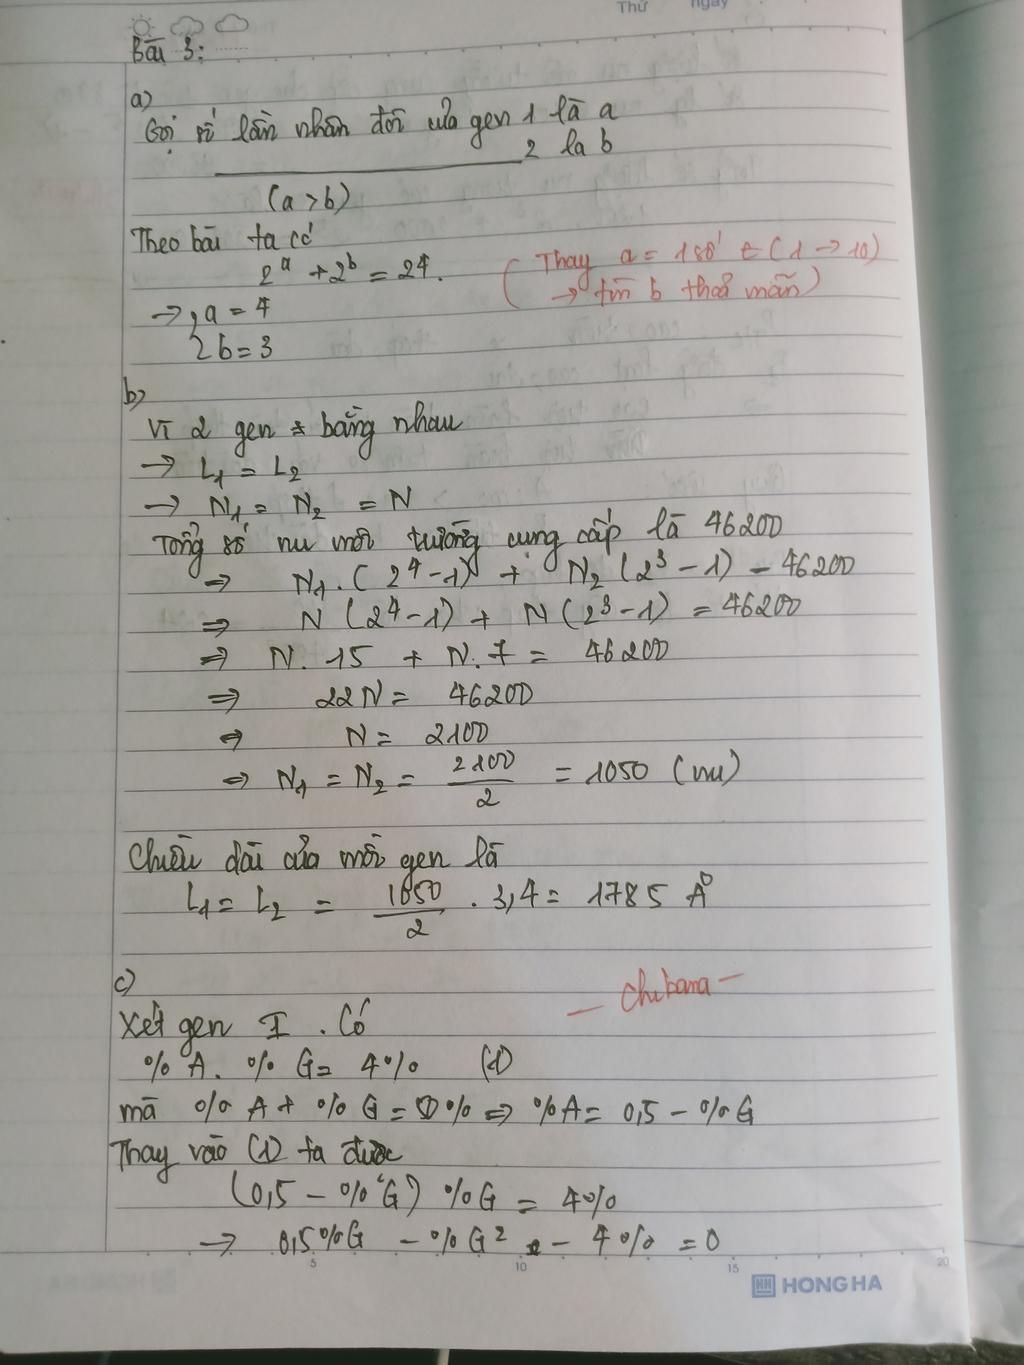 Thứ ngày
Bài 3:
a)
Gọi số lần nhân đôi của gen 1 là a
2 la b
(a > b)
Theo bài ta có
2^a + 2^b = 24.
( Thay a = 1 số ∈ (1 → 10)
→ tìm b thoả mãn)
→ a = 4
b = 3
b)
Vì 2 gen bằng nhau
→ L1 = L2
→ N1 = N2 = N
Tổng số nu môi trường cung cấp là 46200
⇒ N1. (2^4 - 1) + N2 (2^3 - 1) = 46200
⇒ N (2^4 - 1) + N (2^3 - 1) = 46200
⇒ N. 15 + N. 7 = 46200
⇒ 22N = 46200
⇒ N = 2100
⇒ N1 = N2 = 2100/2 = 1050 (nu)
Chiều dài của mỗi gen là
L1 = L2 = 1050/2 . 3,4 = 1785 Å
c)
- Chibana -
Xét gen I . Có
% A. % G = 4% (1)
mà % A + % G = % ⇒ %A = 0,5 - % G
Thay vào (1) ta được
(0,5 - % G) %G = 4%
→ 0,5%G - %G² - 4% = 0
5 10 15 20
HONG HA